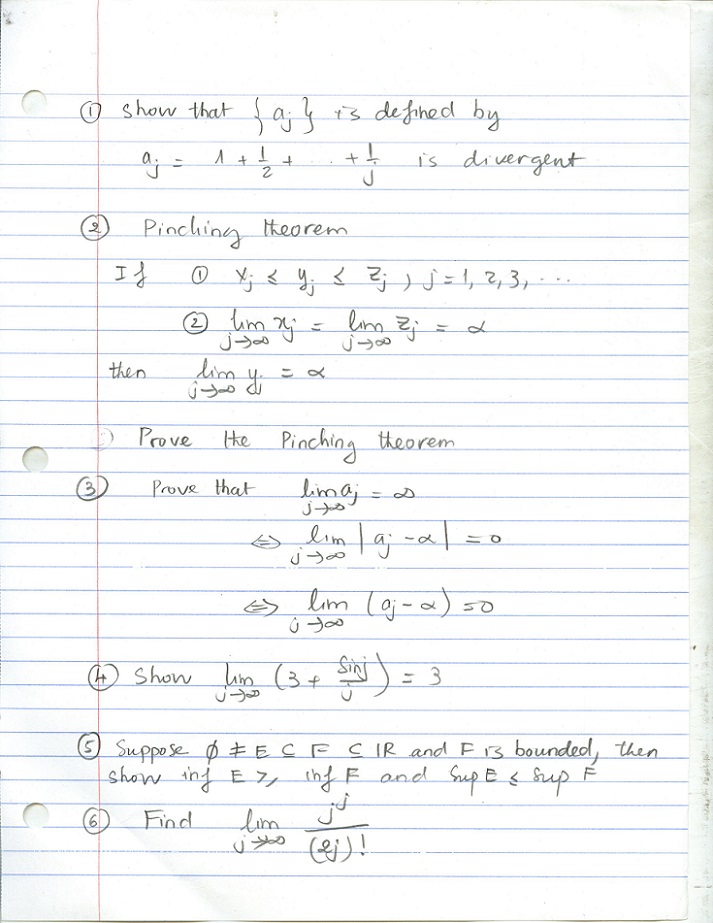 ① Show that { aj } is defined by
aj = 1 + 1/2 + ... + 1/j is divergent
② Pinching theorem
If ① xj ≤ yj ≤ zj , j = 1, 2, 3, ...
② lim j→∞ xj = lim j→∞ zj = α
then lim j→∞ yj = α
Prove the Pinching theorem
③ Prove that lim j→∞ aj = ∞
⇔ lim j→∞ | aj - α | = 0
⇔ lim j→∞ (aj - α) = 0
④ Show lim j→∞ (3 + sinj/j) = 3
⑤ Suppose ∅ ≠ E ⊆ F ⊆ IR and F is bounded, then
show inf E ≥ inf F and Sup E ≤ Sup F
⑥ Find lim j→∞ j^j/(2j)!